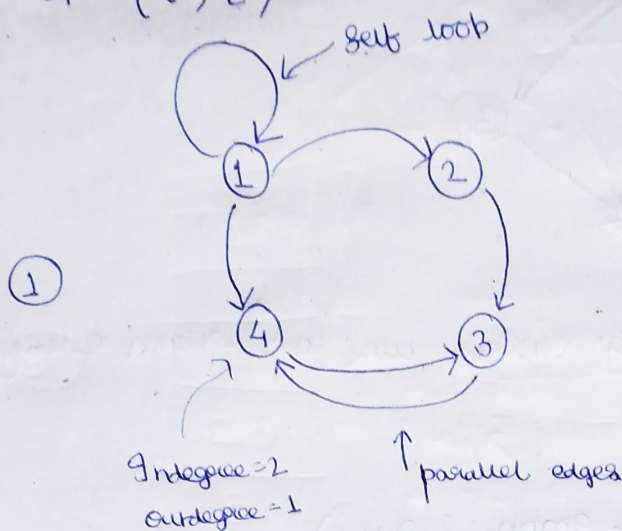 self loop
1
2
1
4
3
Indegree=2
outdegree=1
parallel edges